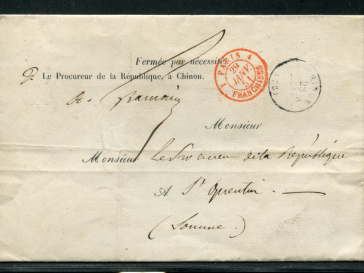 Fermée par nécessité
Le Procureur de la République, à Chinon.
PARIS
FRANCHISE
Monsieur
Monsieur Le Procureur de la République
A St Quentin
(Somme)